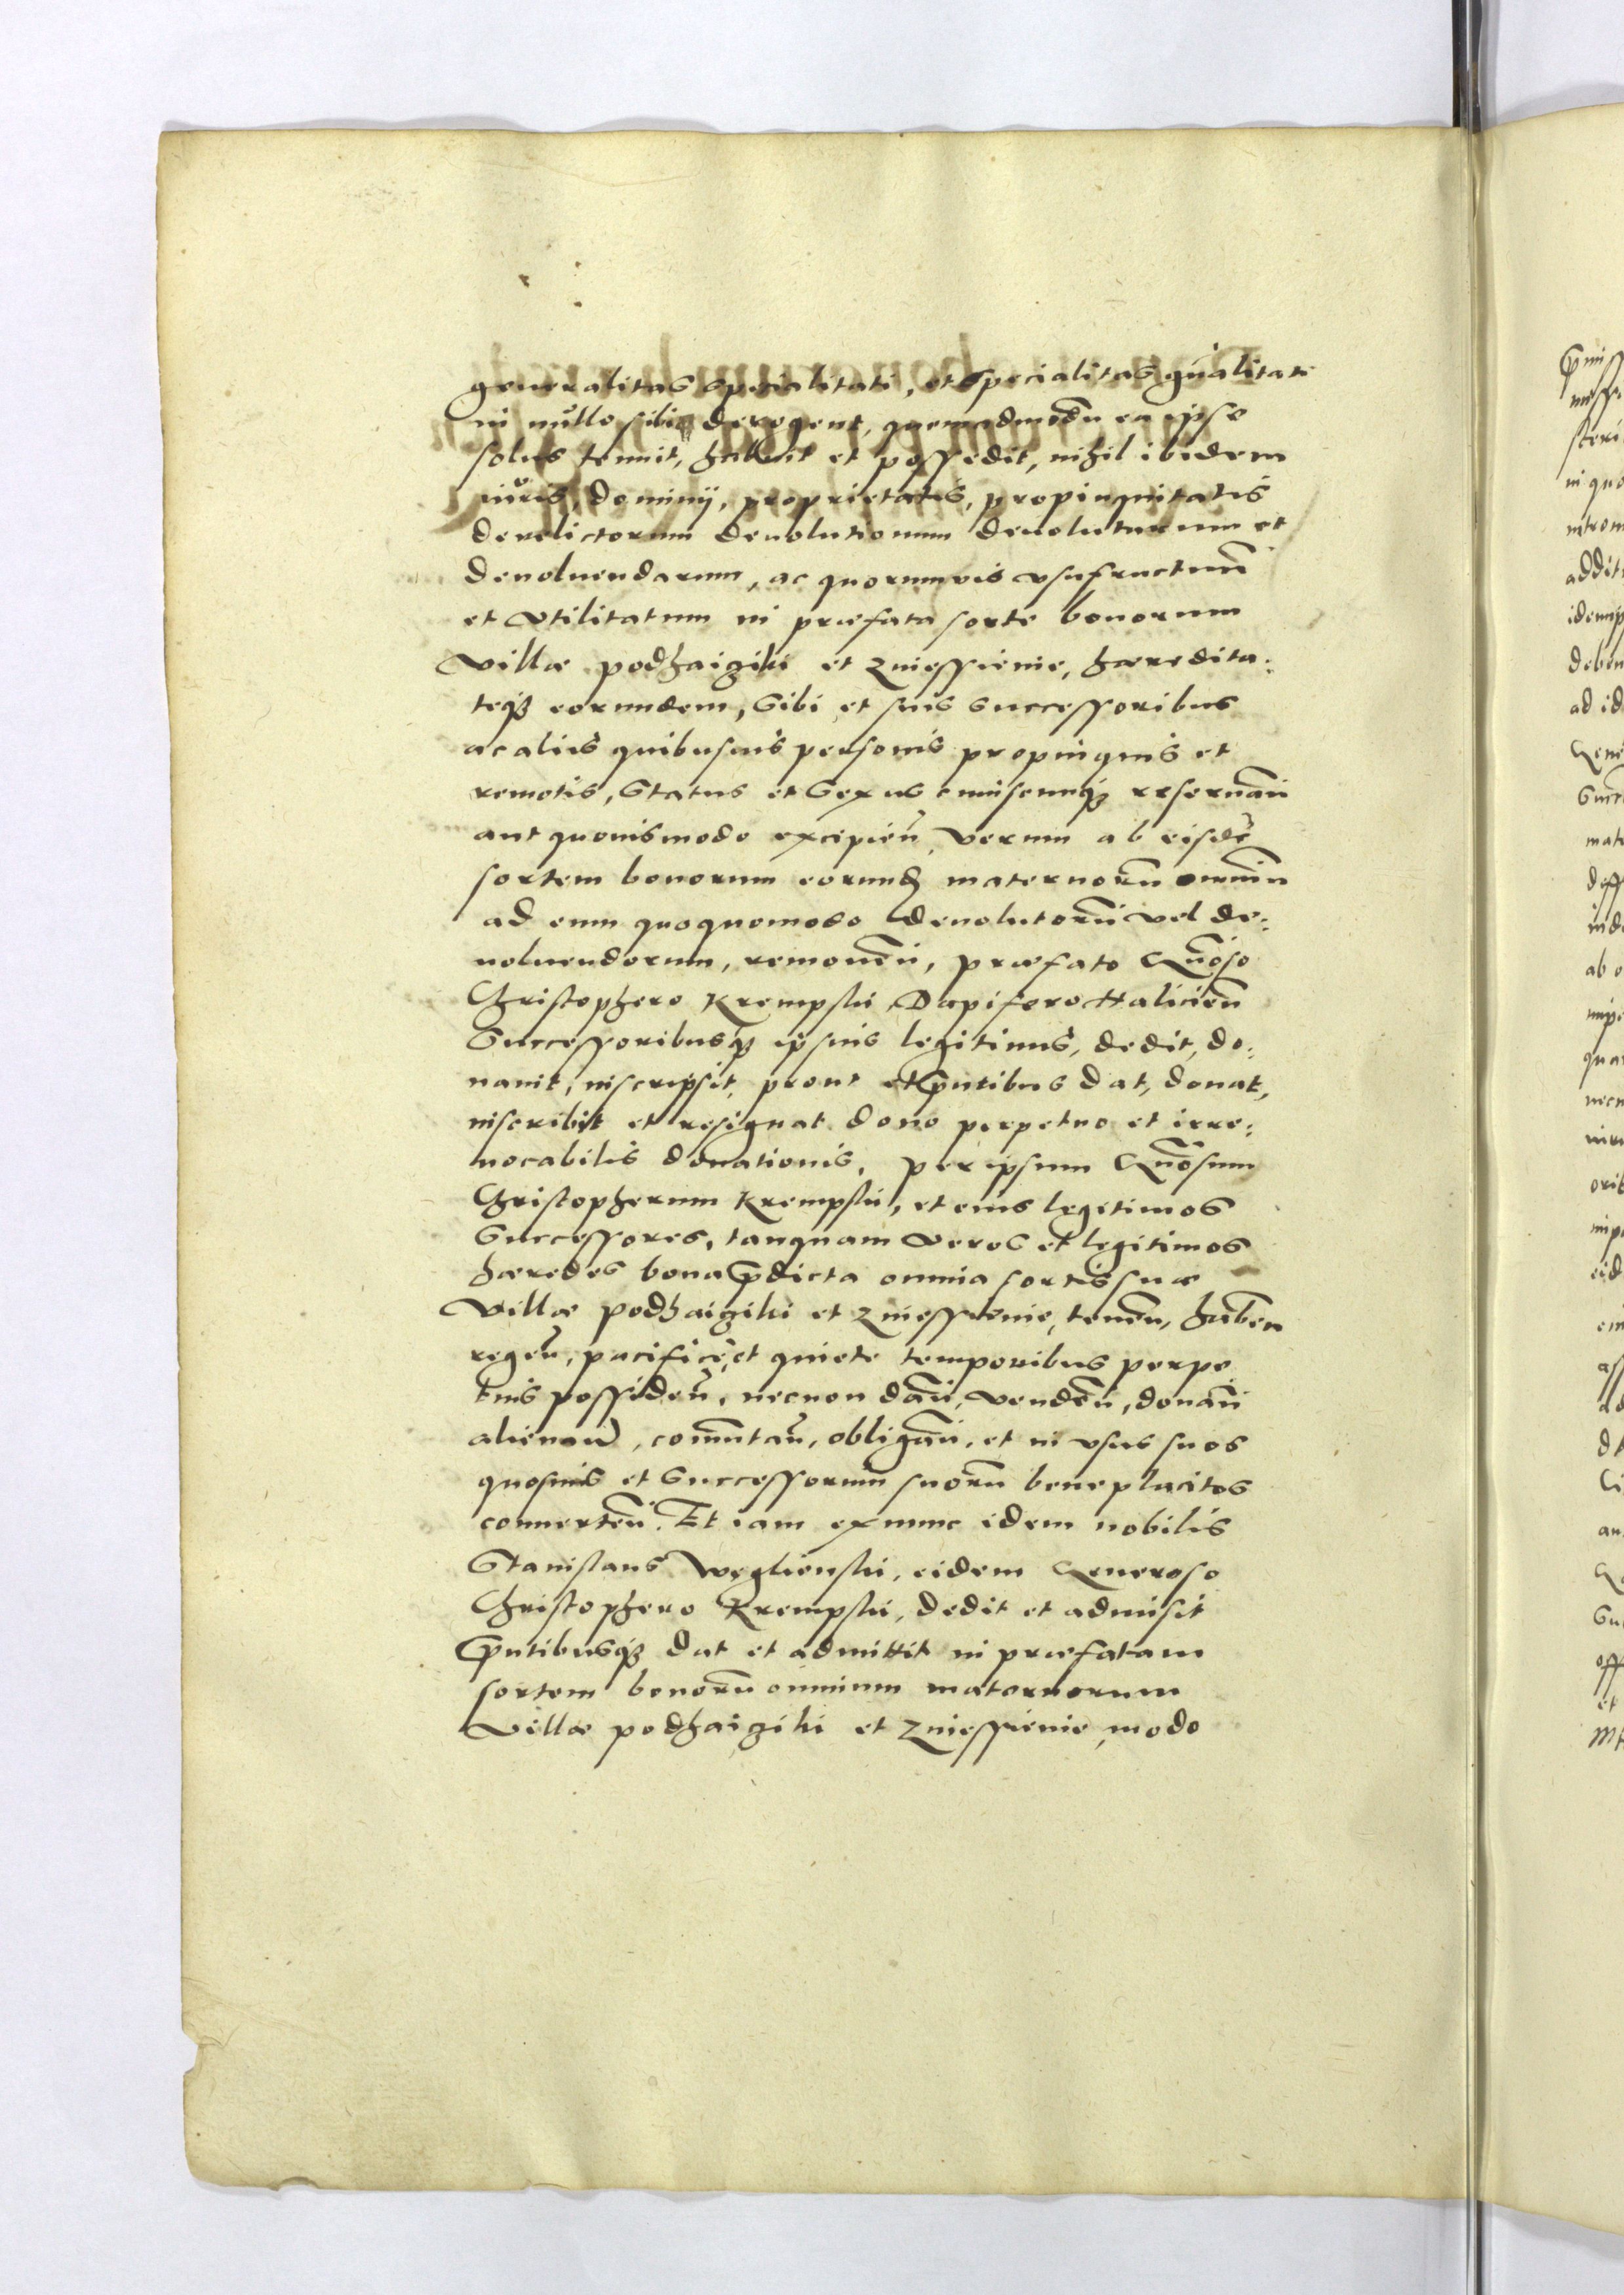 generalitas specialitati, et specialitas gnalitati
in nullo sibi derogent, quemadmodũ ea ipse
solus tenuit, habuit et possedit, nihil ibidem
iuris, dominij, proprietatis, propinquitatis
derelictorum deuolutionum deuolutarum et
deuoluendarum, ac quorumuis vsufructuũ
et vtilitatum in præfata sorte bonorum
Villæ podhaiziki et Zniessienie, hæredita:
teq3 eorundem, Sibi et suis Successoribus
ac aliis quibusuis personis propinquis et
remotis, Status et Sexus cuiuscunq3 reseruañ
aut quouismodo excipieñ, verum ab eisdẽ
sortem bonorum eorund maternorũ omniũ
ad eum quoquomodo deuolutorũ vel de:
uoluendorum, remoueñ, præfato Gñoso
Christophero Krempski Dapifero Halicieñ
Successoribusq3 ipsius legitimis, dedit, do:
nauit, inscripsit, prout et pñtibus dat, donat,
inscribit et resignat dono perpetuo et irre:
uocabilis donationis, per ipsum Gñosum
Christopherum Krempski, et eius legitimos
Successores, tanquam veros et legitimos
hæredes bona pdicta omnia sortis suæ
Villæ podhaiziki et Zniessienie, teneñ, habeñ
regeñ, pacifice, et quiete temporibus perpe
tuis possideñ, necnon dañ, vendeñ, donañ
alienañ, com̃utañ, obligañ, et in vsus suos
quosuis et Successorum suorũ beneplacitos
conuerteñ. Et iam ex nunc idem nobilis
Stanislaus Weglienski, eidem Generoso
Christophero Krempski, dedit et admisit
pñtibusq3 dat et admittit in præfatam
sortem bonorũ omnium maternorum
Villæ podhaiziki et Zniessienie, modo